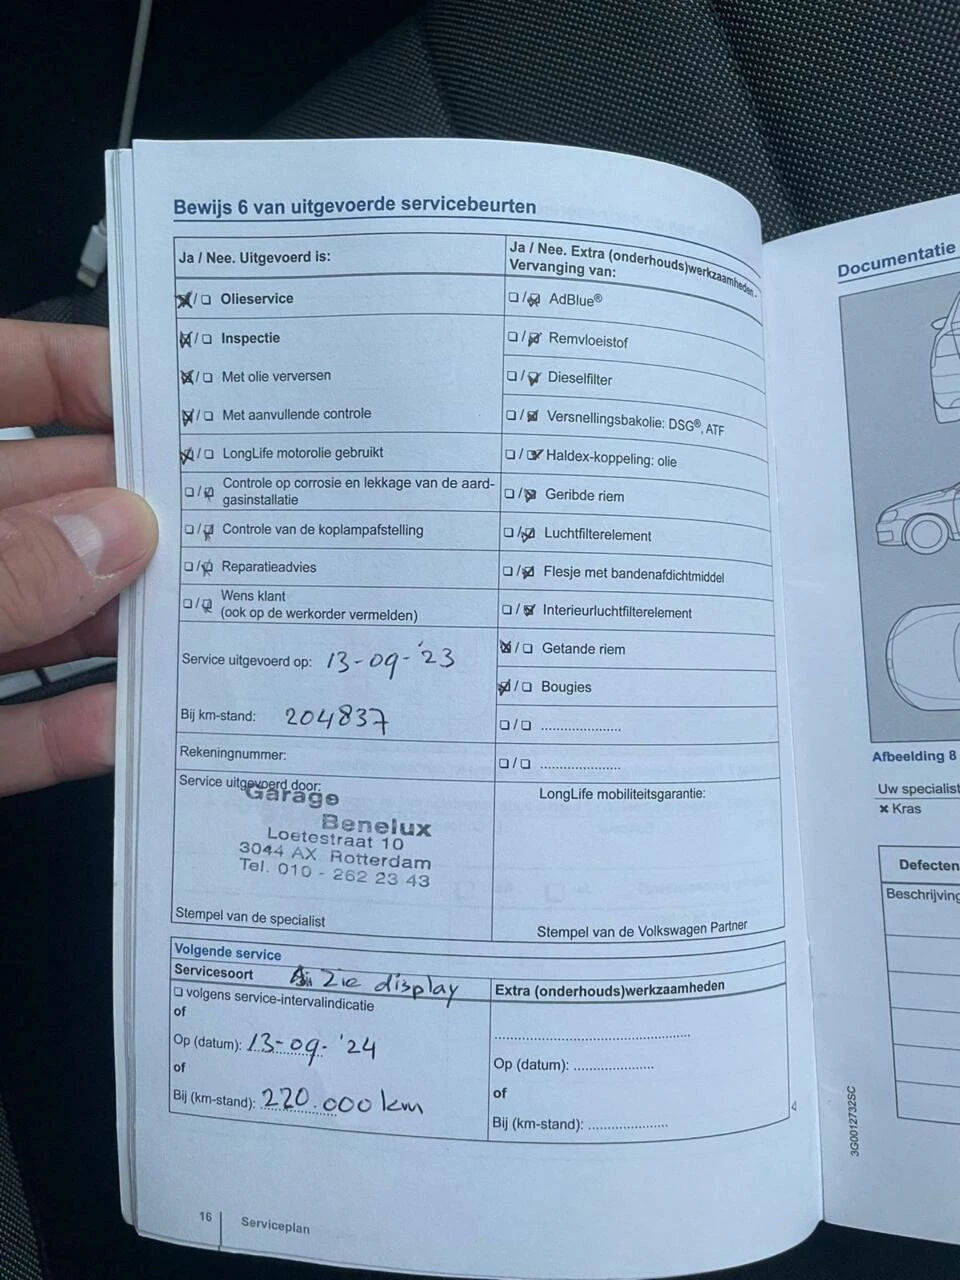 Bewijs 6 van uitgevoerde servicebeurten
Ja / Nee. Uitgevoerd is:
Olieservice
Inspectie
Met olie verversen
Met aanvullende controle
LongLife motorolie gebruikt
Controle op corrosie en lekkage van de aard-
gasinstallatie
Controle van de koplampafstelling
Reparatieadvies
Wens klant
(ook op de werkorder vermelden)
Service uitgevoerd op: 13-09-'23
Bij km-stand: 204837
Rekeningnummer:
Service uitgevoerd door:
Garage
Benelux
Loetestraat 10
3044 AX Rotterdam
Tel. 010 - 262 23 43
Stempel van de specialist
Ja / Nee. Extra (onderhouds)werkzaamheden -
Vervanging van:
AdBlue®
Remvloeistof
Dieselfilter
Versnellingsbakolie: DSG®, ATF
Haldex-koppeling: olie
Geribde riem
Luchtfilterelement
Flesje met bandenafdichtmiddel
Interieurluchtfilterelement
Getande riem
Bougies
/ ......................
/ ......................
LongLife mobiliteitsgarantie:
Stempel van de Volkswagen Partner
Volgende service
Servicesoort Zie display
volgens service-intervalindicatie
of
Op (datum): 13-09-'24
of
Bij (km-stand): 220.000 km
Extra (onderhouds)werkzaamheden
......................................................
Op (datum): ......................
of
Bij (km-stand): ......................
16 Serviceplan
3G0012732SC
Documentatie
Afbeelding 8
Uw specialist
× Kras
Defecten
Beschrijving